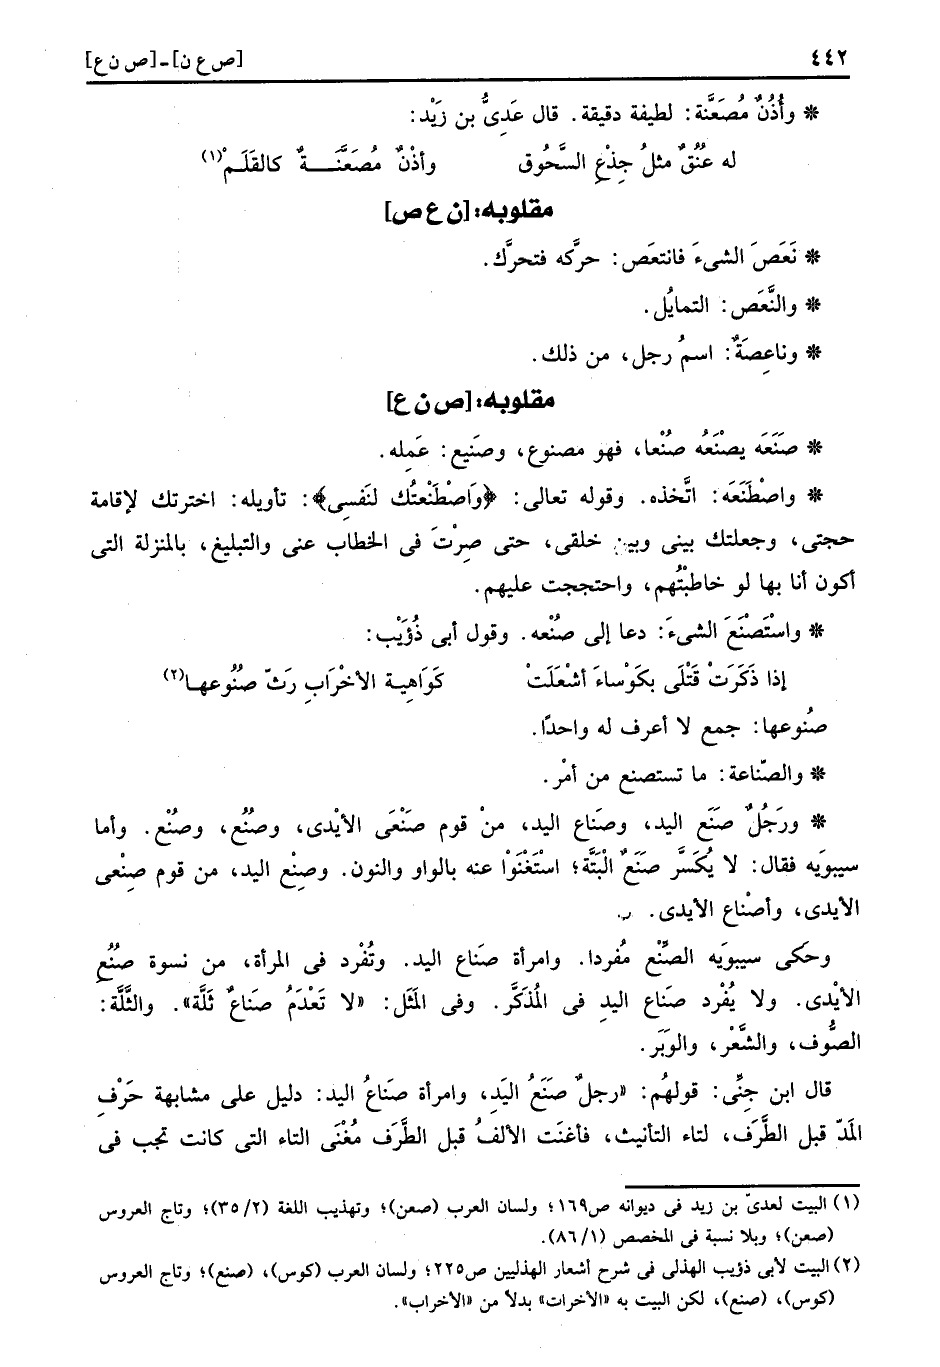 ٤٤٢
[ص ع ن] - [ص ن ع]
* وأُذُنٌ مُصَعَّنة: لطيفة دقيقة. قال عَدِىُّ بن زَيْد:
له عنُقٌ مثلُ جِذْعِ السَّحُوق وأذْنٌ مُصَعَّنَــــةٌ كالقَلَـمْ(١)
مقلوبه: [ن ع ص]
* نَعَصَ الشىءَ فانتعَص: حرَّكه فتحرَّك.
* والنَّعَص: التمايُل.
* وناعِصَةُ: اسمُ رجل، من ذلك.
مقلوبه: [ص ن ع]
* صَنَعَه يصْنَعُه صُنْعا، فهو مصنوع، وصَنيع: عَمِله.
* واصْطَنَعَه: اتَّخذه. وقوله تعالى: ﴿وَاصْطَنَعتُك لنَفسِى﴾: تأويله: اخترتك لإقامة
حجتى، وجعلتك بينى وبين خلقى، حتى صِرْتَ فى الخطاب عنى والتبليغ، بالمنزلة التى
أكون أنا بها لو خاطبْتُهم، واحتججت عليهم.
* واسْتَصْنَعَ الشىءَ: دعا إلى صُنْعه. وقول أبى ذُؤَيْب:
إذا ذَكَرَتْ قَتْلَى بكَوْساءَ أشْعَلَتْ كَوَاهِيـة الأخْرَابِ رَثّ صنُوعهـا(٢)
صنُوعها: جمع لا أعرف له واحدًا.
* والصّناعة: ما تستصنع من أمْر.
* ورَجُلٌ صنَع اليد، وصنَاع اليد، منْ قوم صَنْعَى الأيْدى، وصنُع، وصنْع. وأما
سيبوَيه فقال: لا يُكَسَّر صَنَعٌ الْبَتَّة؛ استَغْنَوْا عنه بالواو والنون. وصِنْع اليد، من قوم صِنْعى
الأيدى، وأصْناع الأيدى.
وحكى سيبوَيه الصِّنْع مُفردا. وامرأة صنَاع اليد. وتُفْرد فى المرأة، من نسوة صنُعِ
الأيْدى. ولا يُفْرد صنَاع اليدِ فى المُذكَّر. وفى المَثَل: «لا تَعْدَمُ صنَاعٌ ثَلَّة». والثَّلَّة:
الصُّوف، والشَّعْر، والوَبَر.
قال ابن جِنِّى: قولهُم: «رجلٌ صنَعُ اليَدِ، وامرأة صنَاعُ اليد: دليل على مشابهة حَرْفِ
المَدّ قبل الطَّرَف، لتاء التأنيث، فأغنَت الألفُ قبل الطَّرَف مُغْنَى التاء التى كانت تجب فى
(١) البيت لعدىّ بن زيد فى ديوانه ص١٦٩؛ ولسان العرب (صعن)؛ وتهذيب اللغة (٣٥/٢)؛ وتاج العروس
(صعن)؛ وبلا نسبة فى المخصص (٨٦/١).
(٢) البيت لأبى ذؤيب الهذلى فى شرح أشعار الهذليين ص٢٢٥؛ ولسان العرب (كوس)، (صنع)؛ وتاج العروس
(كوس)، (صنع)، لكن البيت به «الأخرات» بدلاً من «الأخراب».